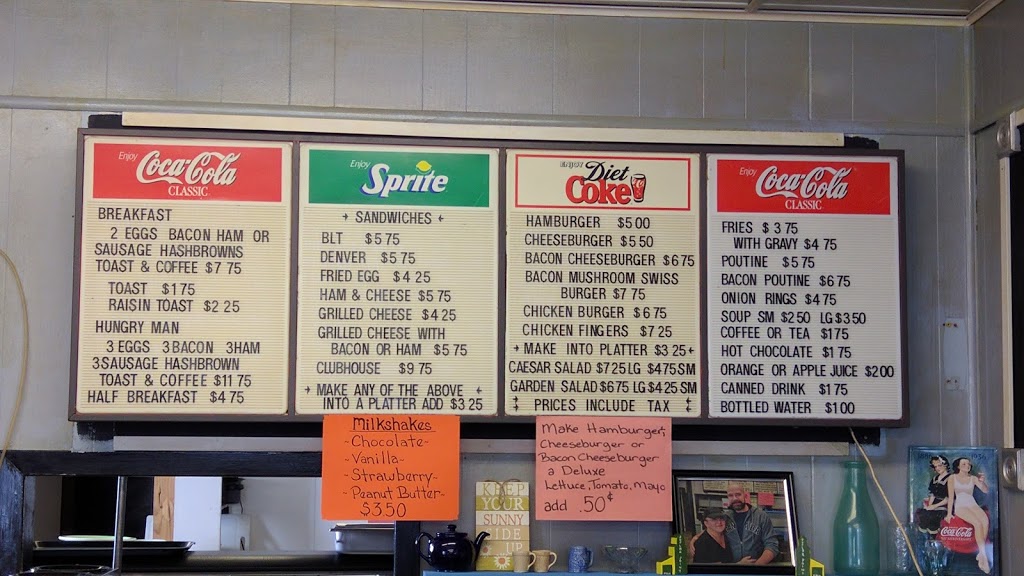 Enjoy
Coca-Cola
CLASSIC
BREAKFAST
2 EGGS BACON HAM OR
SAUSAGE HASHBROWNS
TOAST & COFFEE $7 75
TOAST $1 75
RAISIN TOAST $2 25
HUNGRY MAN
3 EGGS 3 BACON 3 HAM
3 SAUSAGE HASHBROWN
TOAST & COFFEE $11 75
HALF BREAKFAST $4 75
Enjoy
Sprite
SANDWICHES
BLT $5 75
DENVER $5 75
FRIED EGG $4 25
HAM & CHEESE $5 75
GRILLED CHEESE $4 25
GRILLED CHEESE WITH
BACON OR HAM $5 75
CLUBHOUSE $9 75
MAKE ANY OF THE ABOVE
INTO A PLATTER ADD $3 25
ENJOY
Diet
Coke
HAMBURGER $5 00
CHEESEBURGER $5 50
BACON CHEESEBURGER $6 75
BACON MUSHROOM SWISS
BURGER $7 75
CHICKEN BURGER $6 75
CHICKEN FINGERS $7 25
MAKE INTO PLATTER $3 25
CAESAR SALAD $7 25 LG $4 75 SM
GARDEN SALAD $6 75 LG $4 25 SM
PRICES INCLUDE TAX
Enjoy
Coca-Cola
CLASSIC
FRIES $3 75
WITH GRAVY $4 75
POUTINE $5 75
BACON POUTINE $6 75
ONION RINGS $4 75
SOUP SM $2 50 LG $3 50
COFFEE OR TEA $1 75
HOT CHOCOLATE $1 75
ORANGE OR APPLE JUICE $2 00
CANNED DRINK $1 75
BOTTLED WATER $1 00
Milkshakes
-Chocolate-
-Vanilla-
-Strawberry-
-Peanut Butter-
$3.50
Make Hamburger,
Cheeseburger or
Bacon Cheeseburger
a Deluxe
Lettuce, Tomato, Mayo
add .50¢
KEEP
YOUR
SUNNY
SIDE
UP
Coca-Cola